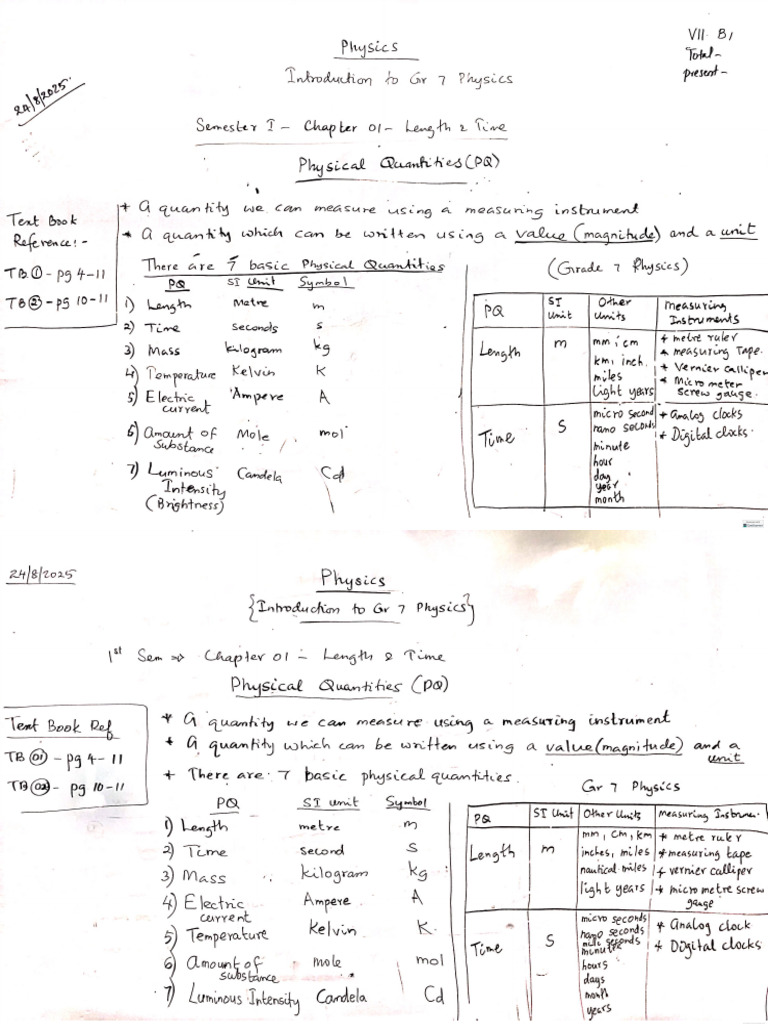 VII B,
Total-
present-
24/8/2025.
Physics
Introduction to Gr 7 Physics
Semester I - Chapter 01 - Length & Time
Physical Quantities (PQ)
Text Book
Reference:-
TB ① - pg 4-11
TB ② - pg 10-11
* A quantity we can measure using a measuring instrument
* A quantity which can be written using a value (magnitude) and a unit
There are 7 basic Physical Quantities
PQ SI Unit Symbol
1) Length Metre m
2) Time seconds s
3) Mass kilogram kg
4) Temperature Kelvin K
5) Electric Ampere A
current
6) Amount of Mole mol
substance
7) Luminous Candela Cd
Intensity
(Brightness)
(Grade 7 Physics)
PQ SI Unit Other Units Measuring Instruments
Length m mm, cm * metre ruler
km, inch. * measuring Tape.
miles * Vernier Calliper
light years * Micro meter
screw gauge.
Time S micro second * Analog clocks
nano seconds * Digital clocks.
minute
hour
day
year
month
24/8/2025
Physics
{Introduction to Gr 7 Physics}
1st Sem => Chapter 01 - Length & Time
Physical Quantities (PQ)
Text Book Ref
TB (01) - pg 4-11
TB (02) - pg 10-11
* A quantity we can measure using a measuring instrument
* A quantity which can be written using a value (magnitude) and a
unit
* There are 7 basic physical quantities.
PQ SI unit Symbol
1) Length metre m
2) Time second s
3) Mass kilogram kg
4) Electric Ampere A
current
5) Temperature Kelvin K
6) Amount of mole mol
substance
7) Luminous Intensity Candela Cd
Gr 7 Physics
PQ SI Unit Other Units Measuring Instrumen.
Length m mm, cm, km * metre ruler
inches, miles * measuring tape
nautical miles * vernier calliper
light years * micro metre screw
gauge
Time S micro seconds * Analog clock
nano seconds * Digital clocks
milli seconds
minutes
hours
days
month
years